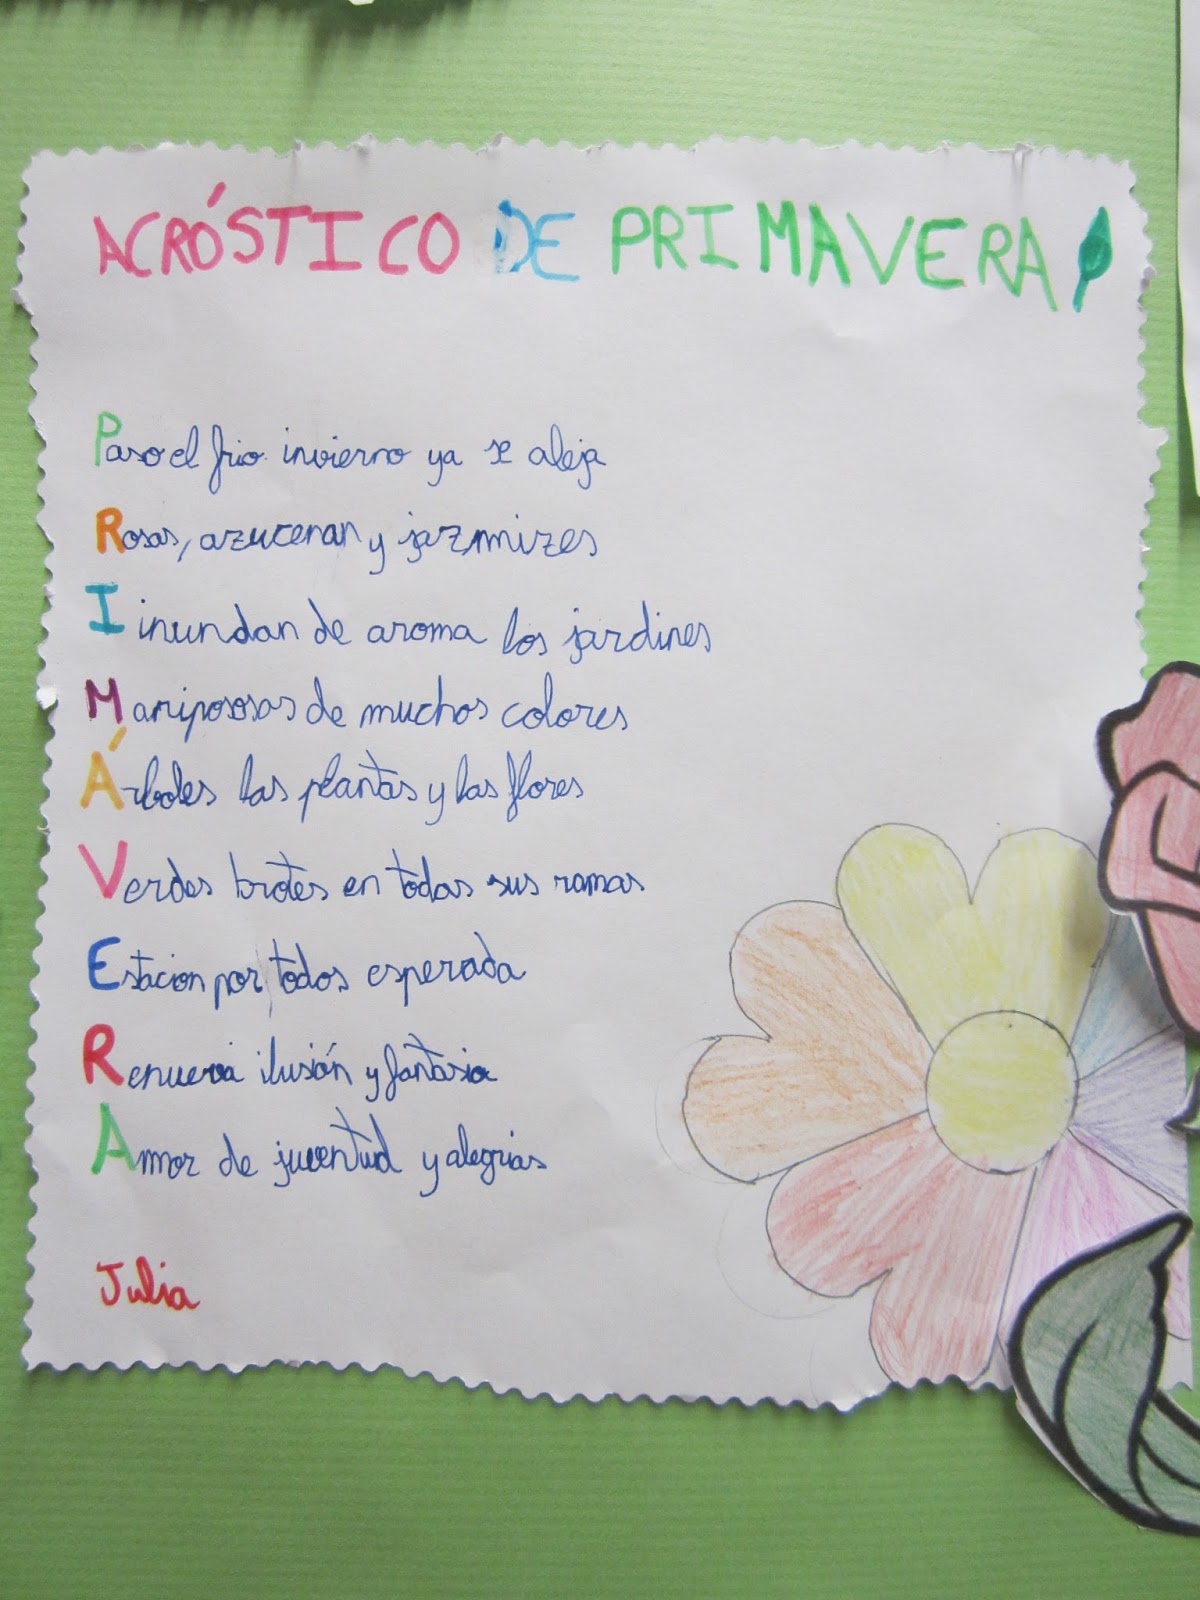 ACRÓSTICO DE PRIMAVERA
Paso el frio invierno ya se aleja
Rosas, azucenan y jazmizes
I inundan de aroma los jardines
Mariposas de muchos colores
Árboles las plantas y las flores
Verdes brotes en todas sus ramas
Estacion por todos esperada
Renueva ilusión y fantasia
Amor de juventud y alegrias
Julia